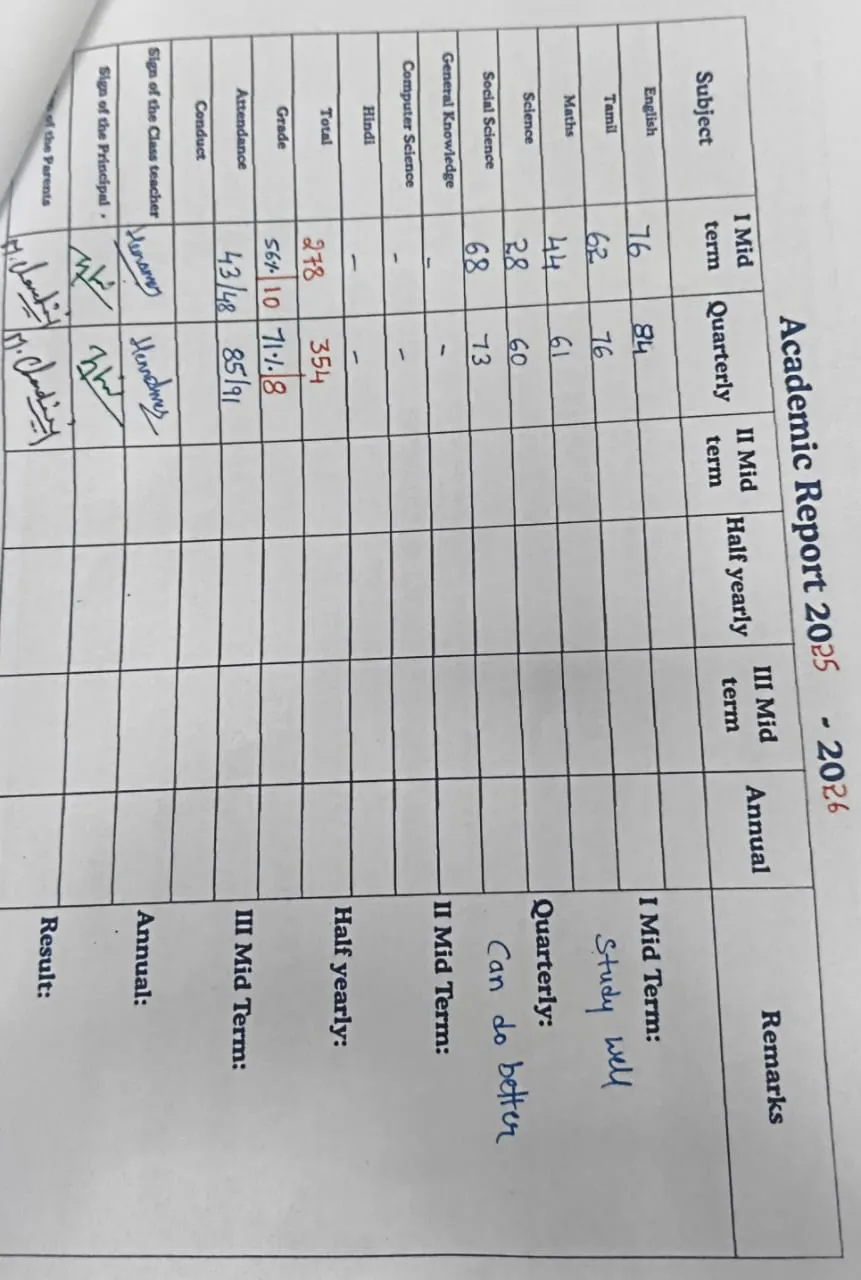 Academic Report 2025 - 2026
Subject I Mid term Quarterly II Mid term Half yearly III Mid term Annual Remarks
English 76 84
Tamil 62 76
Maths 44 61
Science 28 60
Social Science 68 73
General Knowledge - -
Computer Science - -
Hindi - -
Total 278 354
Grade 56% 10 71% 8
Attendance 43/48 85/91
Conduct
Sign of the Class teacher
Sign of the Principal
of the Parents
I Mid Term:
Study well
Quarterly:
Can do better
II Mid Term:
Half yearly:
III Mid Term:
Annual:
Result: